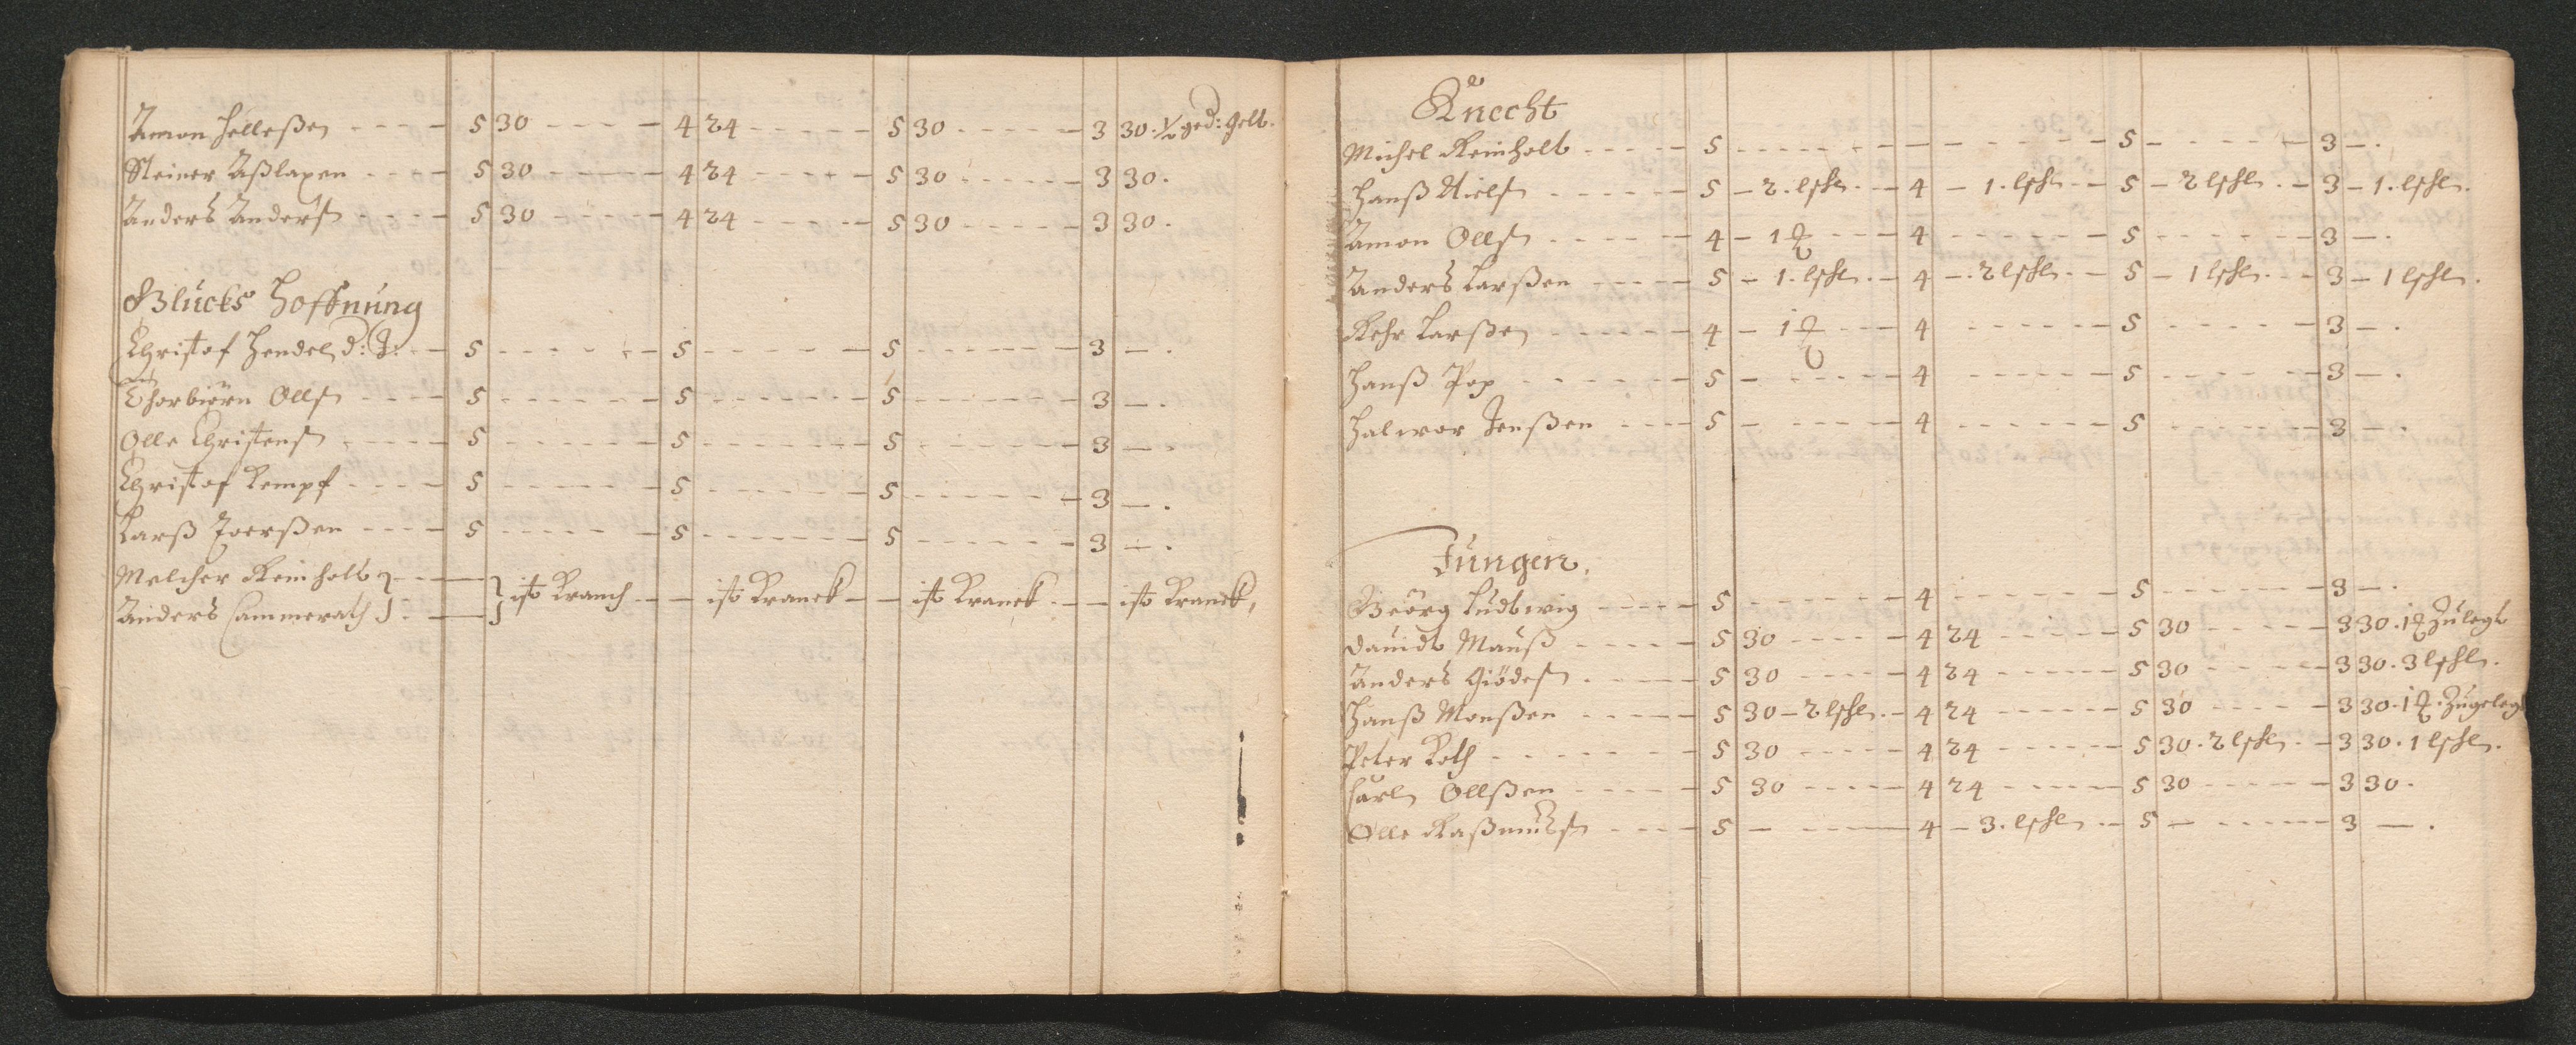 Amon Helleßen - - - - 5 30 - - - - 4 24 - - - - - 5 30 - - - - - 3 30. ½ ged: gelt.
Steiner Aßlaxen - - - - 5 30 - - - - 4 24 - - - - - 5 30 - - - - - 3 30.
Anders Anderß - - - - 5 30 - - - - 4 24 - - - - - 5 30 - - - - - 3 30.
Glücks Hoffnüng
Christof Hendel d: J: - - 5 - - - - - 5 - - - - - 5 - - - - - 3 - .
Thorbiörn Ollß - - - - 5 - - - - - 5 - - - - - 5 - - - - - 3 - .
Olle Christenß - - - - 5 - - - - - 5 - - - - - 5 - - - - - 3 - .
Christof Kempf - - - - 5 - - - - - 5 - - - - - 5 - - - - - 3 - .
Larß Joerßen - - - - 5 - - - - - 5 - - - - - 5 - - - - - 3 - .
Melcher Reinholt - -
Anders Cammerath - - ist Kranch - - ist Kranck - - ist Kranck - - ist Kranck,
Knecht
Michel Reinholt - - - - 5 - - - - - - - - - - 5 - - - - - 3 - .
Hanß Nielß - - - - 5 - 2. lschl. - 4 - 1. lschl - 5 - 2 lschl. - 3 - 1. lschl.
Amon Ollß - - - - 4 - 1 - - 4 - - - - - 5 - - - - - 3 - .
Anders Larßen - - - - 5 - 1. lschl. - 4 - 2 lschl. - 5 - 1 lschl. - 3 - 1 lschl.
Larßen - - - - 4 - 1 - - 4 - - - - - 5 - - - - - 3 - .
Hanß Pop - - - - 5 - - - - - 4 - - - - - 5 - - - - - 3 - .
Halwor Jenßen - - - - 5 - - - - - 4 - - - - - 5 - - - - - 3 - .
Jüngen.
Geörg Lüdtwig - - - - 5 - - - - - 4 - - - - - 5 - - - - - 3 - .
Davidt Mauß - - - - 5 30 - - - - 4 24 - - - - - 5 30 - - - - - 3 30. 1 Zülegt
Anders Giödeß - - - - 5 30 - - - - 4 24 - - - - - 5 30 - - - - - 3 30. 3 lschl.
Hanß Monßen - - - - 5 30 - 2 lschl. - 4 24 - - - - - 5 30 - - - - 3 30. 1 Zügelegt
Peter Roth - - - - 5 30 - - - - 4 24 - - - - - 5 30. 2 lschl. - 3 30. 1 lschl.
Carl Ollßen - - - - 5 30 - - - - 4 24 - - - - - 5 30 - - - - - 3 30.
Olle Raßmüß - - - - 5 - - - - - 4 - 3. lschl - - 5 - - - - - 3 - .